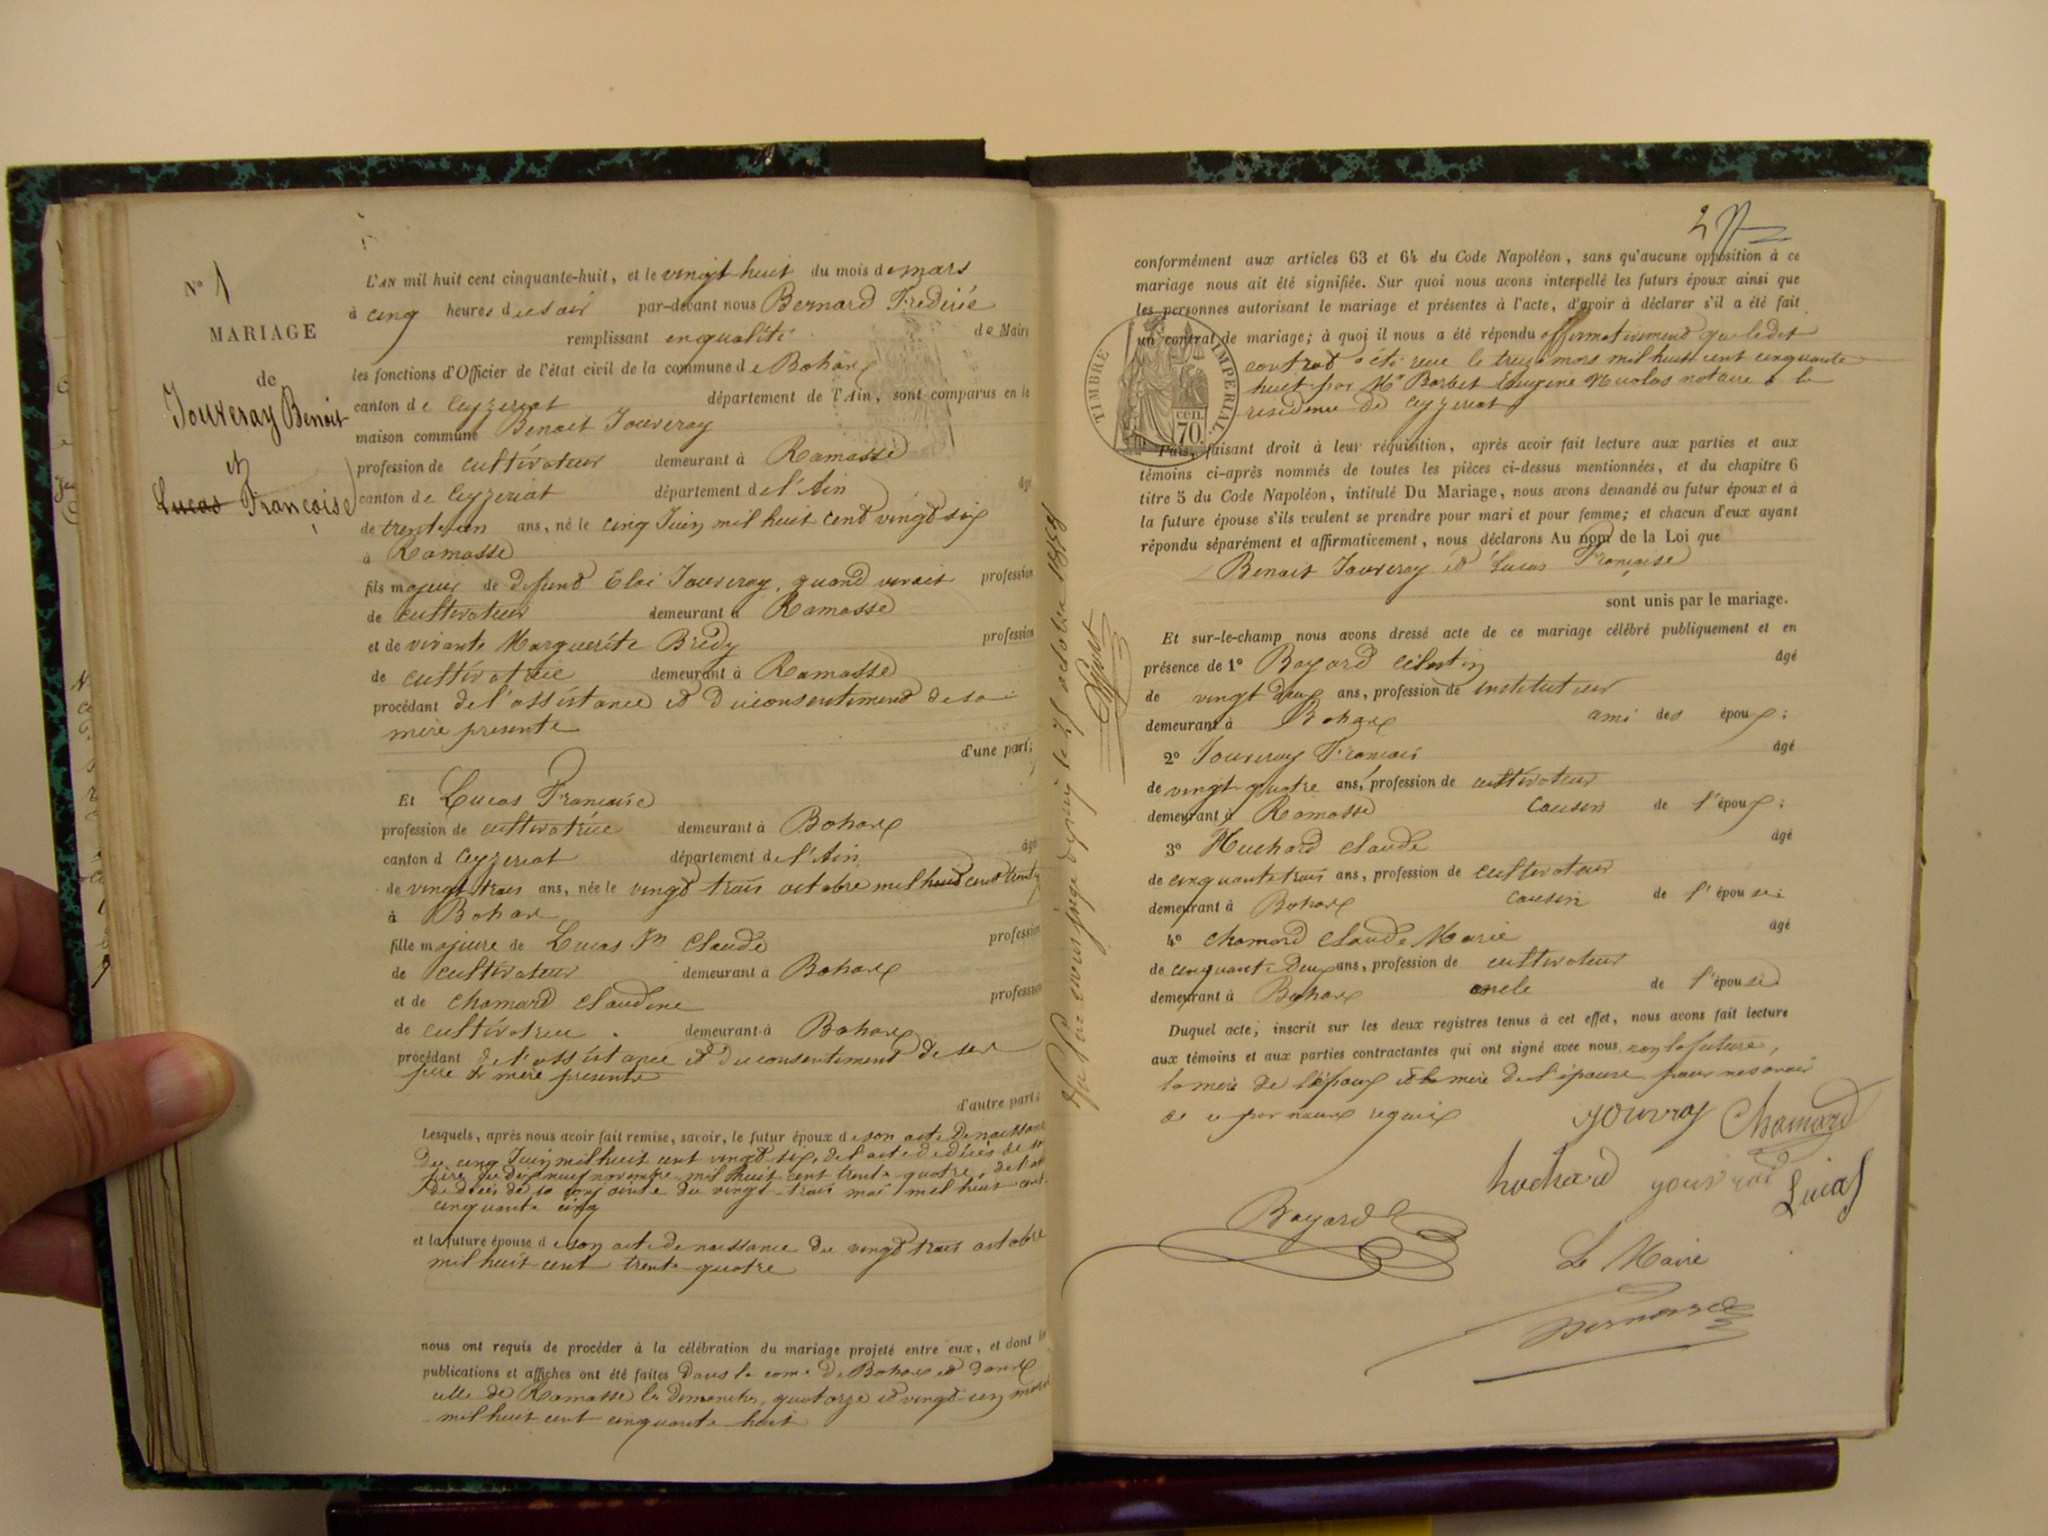 N° 1
MARIAGE
de
Jouveray Benoit
et
Lucas Françoise
L'AN mil huit cent cinquante-huit, et le vingt huit du mois de mars
à cinq heures du soir par-devant nous Bernard Frederic
remplissant en qualité de Maire
les fonctions d'Officier de l'état civil de la commune de Bohas
canton de Ceyzeriat département de l'Ain, sont comparus en la
maison commune Benoit Jouveray
profession de cultivateur demeurant à Ramasse
canton de Ceyzeriat département de l'Ain âgé
de trente un ans, né le cinq Juin mil huit cent vingt six
à Ramasse
fils majeur de defunt Eloi Jouveray, quand vivait profession
de cultivateur demeurant à Ramasse
et de vivante Marguerite Brédy profession
de cultivatrice demeurant à Ramasse
procédant de l'assistance et du consentement de sa
mère presente
d'une part;
Et Lucas Francoise
profession de cultivatrice demeurant à Bohas
canton d Ceyzeriat département de l'Ain âgé
de vingt trois ans, née le vingt trois octobre mil huit cent trente
à Bohas
fille majeure de Lucas Jn Claude profession
de cultivateur demeurant à Bohas
et de Chamard Claudine profession
de cultivatrice demeurant à Bohas
procédant de l'assistance et du consentement de ses
père et mère presents
d'autre part;
Lesquels, après nous avoir fait remise, savoir, le futur époux de son acte de naissance
du cinq Juin mil huit cent vingt six, de l'acte de décès de son
père du dix neuf novembre mil huit cent trente quatre, de l'acte
de décès de sa conjointe du vingt trois mai mil huit cent
cinquante cinq
et la future épouse de son acte de naissance du vingt trois octobre
mil huit cent trente quatre
nous ont requis de procéder à la célébration du mariage projeté entre eux, et dont les
publications et affiches ont été faites dans la come de Bohas et dans
celle de Ramasse les dimanches quatorze et vingt un mars
mil huit cent cinquante huit
conformément aux articles 63 et 64 du Code Napoléon, sans qu'aucune opposition à ce
mariage nous ait été signifiée. Sur quoi nous avons interpellé les futurs époux ainsi que
les personnes autorisant le mariage et présentes à l'acte, d'avoir à déclarer s'il a été fait
un contrat de mariage; à quoi il nous a été répondu affirmativement que ledit
contrat a été reçu le treize mars mil huit cent cinquante
huit par Me Barbet Eugène Nicolas notaire à la
residence de Ceyzeriat
TIMBRE IMPERIAL
70 cen.
Puis, faisant droit à leur réquisition, après avoir fait lecture aux parties et aux
témoins ci-après nommés de toutes les pièces ci-dessus mentionnées, et du chapitre 6
titre 5 du Code Napoléon, intitulé Du Mariage, nous avons demandé au futur époux et à
la future épouse s'ils veulent se prendre pour mari et pour femme; et chacun d'eux ayant
répondu séparément et affirmativement, nous déclarons Au nom de la Loi que
Benoit Jouveray et Lucas Françoise
sont unis par le mariage.
Et sur-le-champ nous avons dressé acte de ce mariage célébré publiquement et en
présence de 1° Bayard Célestin âgé
de vingt deux ans, profession de instituteur
demeurant à Bohas ami des époux;
2° Jouveray Francois âgé
de vingt quatre ans, profession de cultivateur
demeurant à Ramasse cousin de l'époux;
3° Huchard Claude âgé
de cinquante trois ans, profession de cultivateur
demeurant à Bohas cousin de l'épouse;
4° Chamard Claude Marie âgé
de cinquante deux ans, profession de cultivateur
demeurant à Bohas oncle de l'épouse
Duquel acte, inscrit sur les deux registres tenus à cet effet, nous avons fait lecture
aux témoins et aux parties contractantes qui ont signé avec nous, non la future,
la mère de l'époux et la mère de l'épouse pour ne savoir
de ce par nous requis
Jouvray Chamard
huchard Lucas
Bayard
Le Maire
Bernard